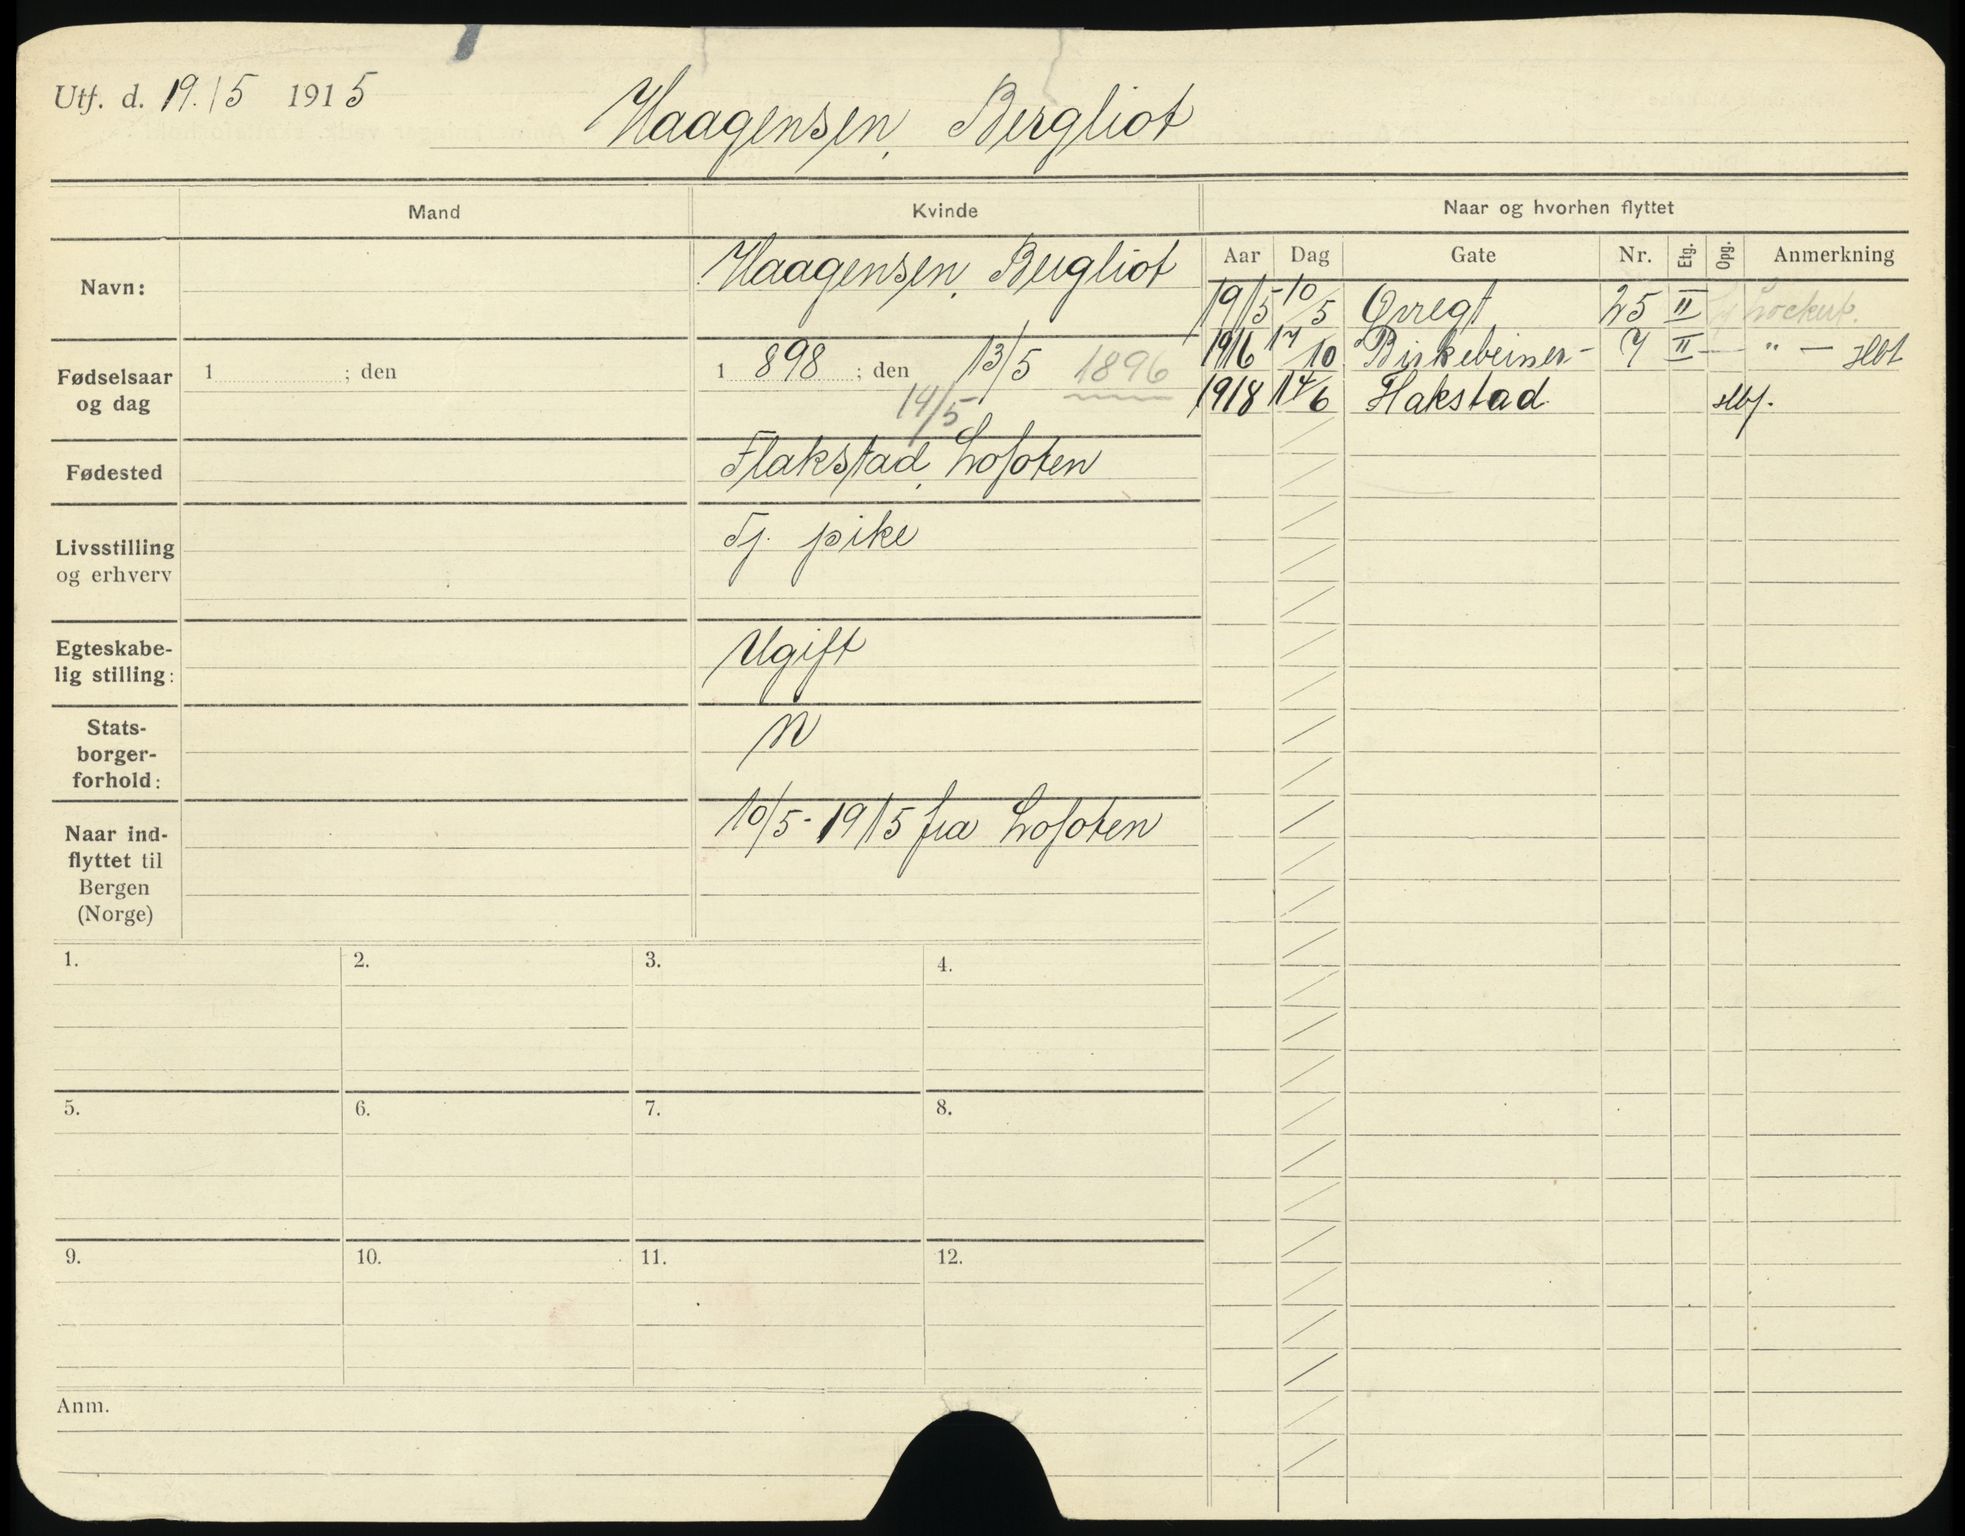 Utf. d. 19./5 1915
Haagensen, Bergliot
Mand
Kvinde
Naar og hvorhen flyttet
Aar Dag Gate Nr. Etg. Opg. Anmerkning
Navn:
Haagensen, Bergliot
1915 10/5 Øvregt 25 II
1916 17/10 Birkebeiner- 7 II — " —
1918 14/6 Flakstad
Fødselsaar
og dag
1 ; den
1 898 ; den 13/5 1896
14/5
Fødested
Flakstad, Lofoten
Livsstilling
og erhverv
Tj. pike
Egteskabe-
lig stilling:
Ugift
Stats-
borger-
forhold:
N
Naar ind-
flyttet til
Bergen
(Norge)
10/5 - 1915 fra Lofoten
1. 2. 3. 4.
5. 6. 7. 8.
9. 10. 11. 12.
Anm.